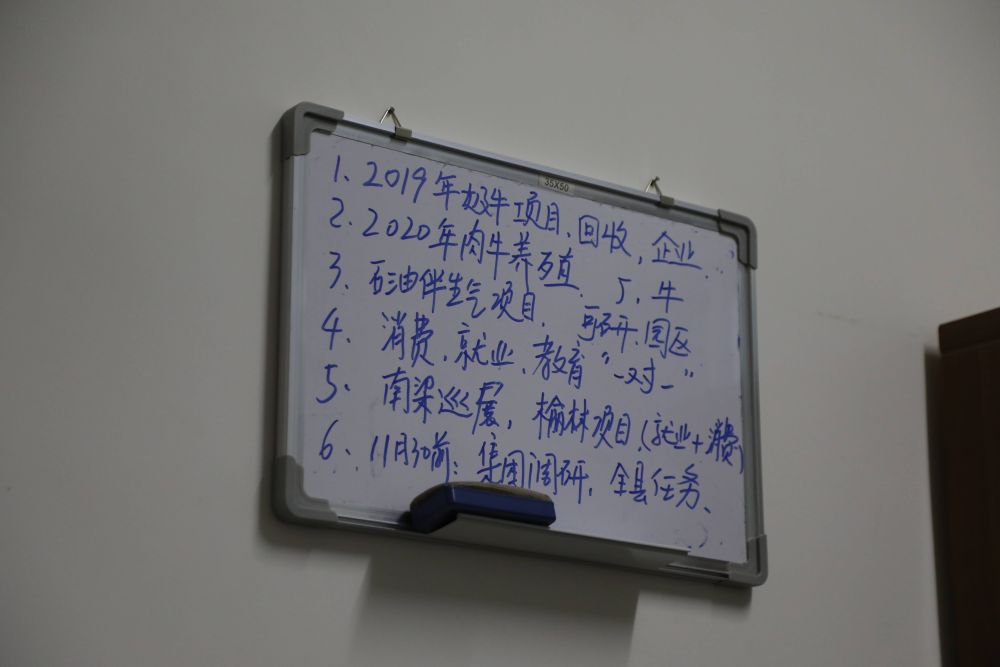 35X50
1、2019年极牛项目、回收,企业
2、2020年肉牛养殖、厂、牛
3、石油伴生气项目、可研、园区
4、消费、就业、教育“一对一”
5、南梁巡展,榆林项目(就业+消费)
6、11月30前:集团调研,全县任务、